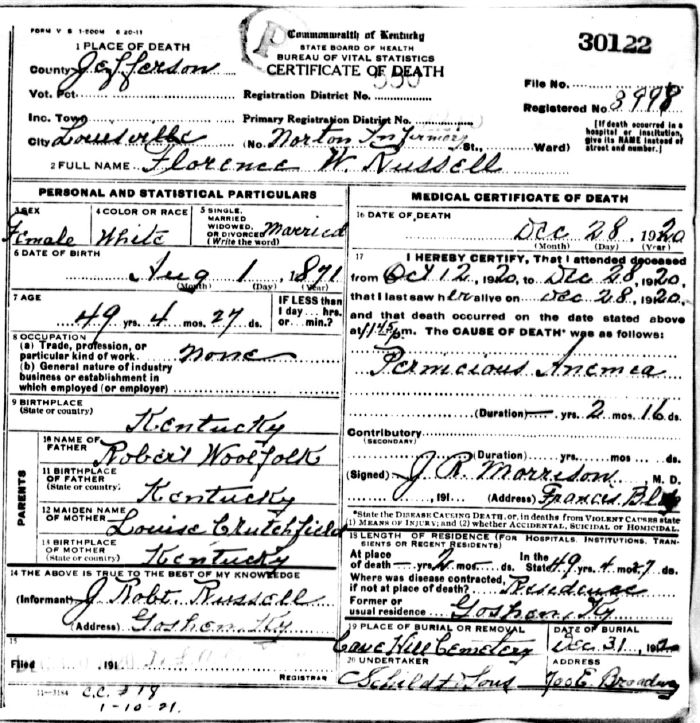 FORM V S 1-500M 6 20-11
Commonwealth of Kentucky
STATE BOARD OF HEALTH
BUREAU OF VITAL STATISTICS
CERTIFICATE OF DEATH
30122
1 PLACE OF DEATH
County Jefferson
Vot. Pct.
Inc. Town
City Louisville
Registration District No.
Primary Registration District No.
(No. Norton Infirmary St., Ward)
File No.
Registered No 3998
[If death occurred in a hospital or institution, give its NAME instead of street and number.]
2 FULL NAME Florence W. Russell
PERSONAL AND STATISTICAL PARTICULARS
3 SEX
Female
4 COLOR OR RACE
White
5 SINGLE, MARRIED WIDOWED, OR DIVORCED (Write the word)
Married
6 DATE OF BIRTH
Aug 1 1871
(Month) (Day) (Year)
7 AGE
49 yrs. 4 mos. 27 ds.
IF LESS than 1 day... hrs. or... min.?
8 OCCUPATION
(a) Trade, profession, or
particular kind of work. none
(b) General nature of industry
business or establishment in
which employed (or employer)
9 BIRTHPLACE
(State or country) Kentucky
PARENTS
10 NAME OF
FATHER Robert Woolfolk
11 BIRTHPLACE
OF FATHER
(State or country) Kentucky
12 MAIDEN NAME
OF MOTHER Louise Crutchfield
13 BIRTHPLACE
OF MOTHER
(State or country) Kentucky
14 THE ABOVE IS TRUE TO THE BEST OF MY KNOWLEDGE
(Informant) J Robt. Russell
(Address) Goshen Ky
15
Filed 191
REGISTRAR
11-3184 C.C. 318
1-10-21.
MEDICAL CERTIFICATE OF DEATH
16 DATE OF DEATH
Dec 28, 1920
(Month) (Day) (Year)
17 I HEREBY CERTIFY, That I attended deceased
from Oct 12, 1920, to Dec 28, 1920,
that I last saw her alive on Dec 28, 1920,
and that death occurred on the date stated above
at 1145 pm. The CAUSE OF DEATH* was as follows:
Pernicious Anemea
(Duration) — yrs. 2 mos. 16 ds.
Contributory
(SECONDARY)
(Duration) yrs. mos. ds.
(Signed) J R. Morrison, M. D.
, 191 (Address) Frances Bldg
*State the DISEASE CAUSING DEATH, or, in deaths from VIOLENT CAUSES state
1) MEANS OF INJURY; and (2) whether ACCIDENTAL, SUICIDAL or HOMICIDAL.
18 LENGTH OF RESIDENCE (FOR HOSPITALS, INSTITUTIONS, TRANSIENTS OR RECENT RESIDENTS)
At place of death — yrs. 2 mos. — ds. In the State 49 yrs. 4 mos. 27 ds.
Where was disease contracted,
if not at place of death? Residence
Former or
usual residence Goshen, Ky
19 PLACE OF BURIAL OR REMOVAL
Cave Hill Cemetery
DATE OF BURIAL
Dec. 31, 1920
20 UNDERTAKER
Schildt Sons
ADDRESS
E. Broadway